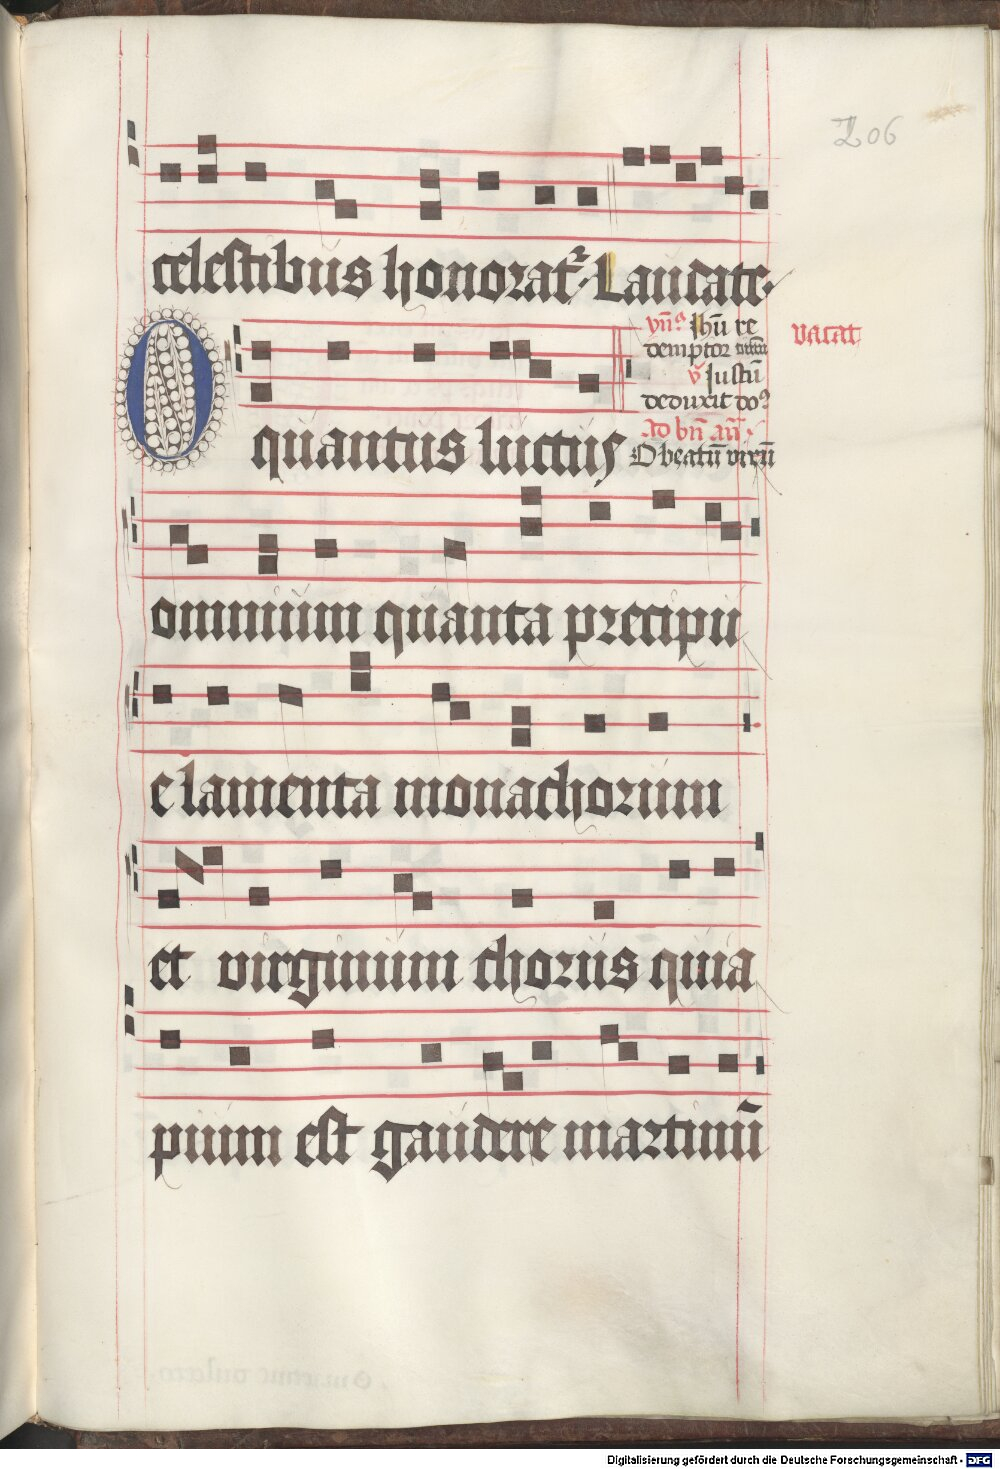 206
celestibus honorat᷑. Laudate.
O quantus luctus
ym̄s Jhū re
demptor omniū
vacat
v̄ Justū
deduxit do⁹
Ad bn̄ an̄.
O beatū virū
omnium quanta precipu
e lamenta monachorum
et virginum chorus quia
pium est gaudere martinū
Digitalisierung gefördert durch die Deutsche Forschungsgemeinschaft - DFG